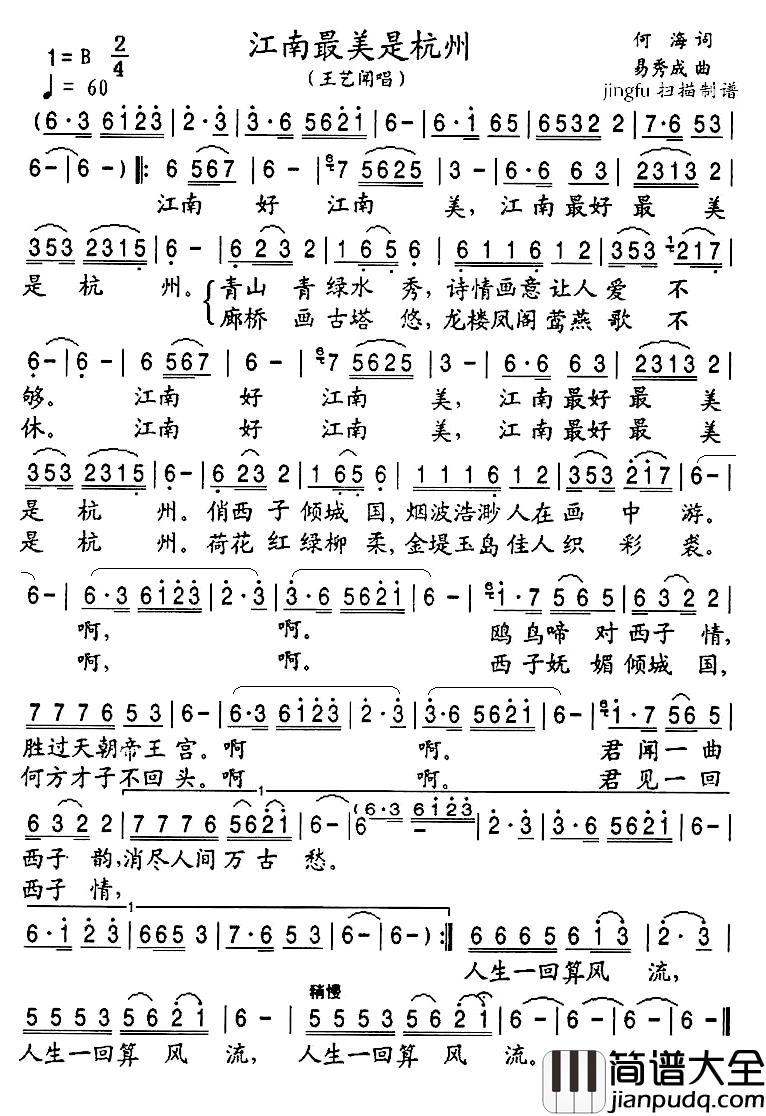 江南最美是杭州
1=B 2/4
♩=60
(王艺闻唱)
何海词
易秀成曲
jingfu 扫描制谱
(6·3 6123|2·3|3·6 5621|6-|6·1 65|6532 2|7·6 53|
6-|6-)‖:6 567|6-|7 5625|3-|6·6 63|2313 2|
江南 好 江南 美, 江南最好 最 美
353 2315|6-|6 23 2|1 65 6|6 1116 12|353 217|
是 杭 州。 青山 青绿水 秀, 诗情画意让人 爱 不
廊桥 画古塔 悠, 龙楼凤阁莺燕 歌 不
6-|6-|6 567|6-|7 5625|3-|6·6 63|2313 2|
够。 江南 好 江南 美, 江南最好 最 美
休。 江南 好 江南 美, 江南最好 最 美
353 2315|6-|6 23 2|1 65 6|1116 12|353 217|6-|
是 杭 州。俏西子倾城 国, 烟波浩渺人在画 中 游。
是 杭 州。荷花红绿柳 柔, 金堤玉岛佳人织 彩 裘。
6-|6·3 6123|2·3|3·6 5621|6-|1·7 565|63 22|
啊, 啊。 鸥鸟啼 对西子 情,
啊, 啊。 西子妩 媚倾城 国,
7776 53|6-|6·3 6123|2·3|3·6 5621|6-|1·7 56 5|
胜过天朝帝王宫。啊 啊。 君闻一曲
何方才子不回头。啊 啊。 君见一回
1
632 2|7776 5621|6-|6 (6·3 6123|2·3|3·6 5621|6-|
西子 韵,消尽人间万古 愁。
西子 情,
1
6·1 23|665 3|7·6 53|6-|6-):‖6665 613|2·3|
人生一回算风 流,
稍慢
5553 5621|6-|5553 5621|6-|6-‖
人生一回算 风 流, 人生一回算 风 流。
简谱大全
jianpudq.com